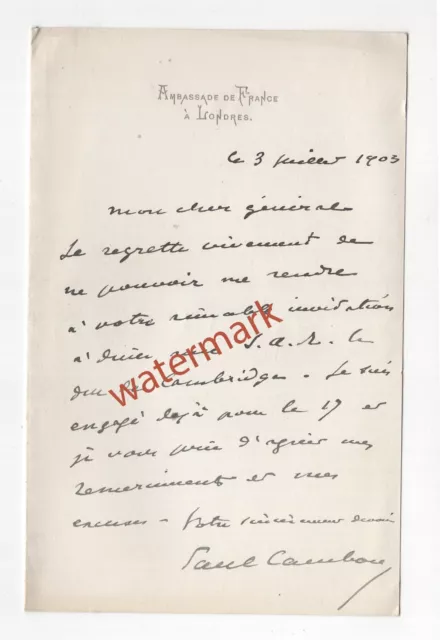 AMBASSADE DE FRANCE
À LONDRES.
le 3 juillet 1903
Mon cher général
Je regrette vivement de
ne pouvoir me rendre
à votre aimable invitation
à dîner S.A.R. le
duc de Cambridge. Je suis
engagé déjà pour le 17 et
je vous prie d'agréer mes
remerciments et mes
excuses - Votre sincèrement dévoué
Paul Cambon
watermark